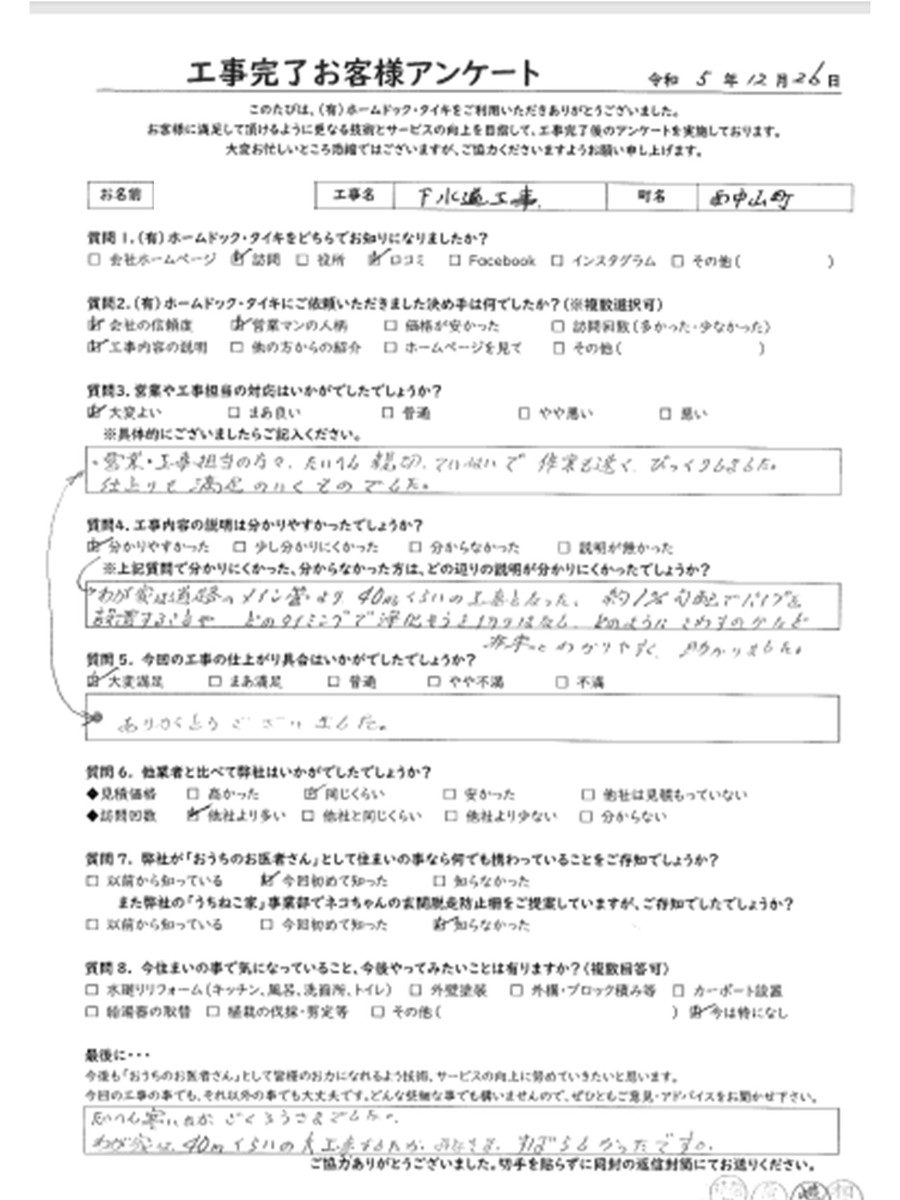 工事完了お客様アンケート
令和 5 年 12 月 26 日
このたびは、(有)ホームドック・タイキをご利用いただきありがとうございました。
お客様に満足して頂けるように更なる技術とサービスの向上を目指して、工事完了後のアンケートを実施しております。
大変お忙しいところ恐縮ではございますが、ご協力くださいますようお願い申し上げます。
お名前 工事名 下水道工事 町名 西中山町
質問 1.(有)ホームドック・タイキをどちらでお知りになりましたか?
□ 会社ホームページ ☑ 訪問 □ 役所 ☑ 口コミ □ Facebook □ インスタグラム □ その他( )
質問2.(有)ホームドック・タイキにご依頼いただきました決め手は何でしたか?(※複数選択可)
☑ 会社の信頼度 ☑ 営業マンの人柄 □ 価格が安かった □ 訪問回数(多かった・少なかった)
☑ 工事内容の説明 □ 他の方からの紹介 □ ホームページを見て □ その他( )
質問3.営業や工事担当の対応はいかがでしたでしょうか?
☑ 大変よい □ まあ良い □ 普通 □ やや悪い □ 悪い
※具体的にございましたらご記入ください。
・営業・工事担当の方々、たいへん親切、ていねいで 作業も速く、びっくりしました。
仕上りも 満足のいくものでした。
質問4.工事内容の説明は分かりやすかったでしょうか?
☑ 分かりやすかった □ 少し分かりにくかった □ 分からなかった □ 説明が無かった
※上記質問で分かりにくかった、分からなかった方は、どの辺りの説明が分かりにくかったでしょうか?
わが家は道路のメイン管より 40mくらいの工事となった。 約1%勾配でパイプを
設置することや どのタイミングで浄化そうと切りはなし、どのように うめするのかなど
わかりやすく、助かりました。
質問 5. 今回の工事の仕上がり具合はいかがでしたでしょうか?
☑ 大変満足 □ まあ満足 □ 普通 □ やや不満 □ 不満
ありがとうございました。
質問 6. 他業者と比べて弊社はいかがでしたでしょうか?
◆見積価格 □ 高かった ☑ 同じくらい □ 安かった □ 他社は見積もっていない
◆訪問回数 ☑ 他社より多い □ 他社と同じくらい □ 他社より少ない □ 分からない
質問 7. 弊社が「おうちのお医者さん」として住まいの事なら何でも携わっていることをご存知でしょうか?
□ 以前から知っている ☑ 今回初めて知った □ 知らなかった
また弊社の「うちねこ家」事業部でネコちゃんの玄関脱走防止柵をご提案していますが、ご存知でしたでしょうか?
□ 以前から知っている □ 今回初めて知った ☑ 知らなかった
質問 8. 今住まいの事で気になっていること、今後やってみたいことは有りますか?(複数回答可)
□ 水廻りリフォーム(キッチン、風呂、洗面所、トイレ) □ 外壁塗装 □ 外構・ブロック積み等 □ カーポート設置
□ 給湯器の取替 □ 植栽の伐採・剪定等 □ その他( ) ☑ 今は特になし
最後に・・・
今後も「おうちのお医者さん」として皆様のお力になれるよう技術、サービスの向上に努めていきたいと思います。
今回の工事の事でも、それ以外の事でも大丈夫です。どんな些細な事でも構いませんので、ぜひともご意見・アドバイスをお聞かせ下さい。
寒い ごくろうさまでした。
わが家は、40mくらいの大工事でしたが、みなさま、すばらしかったです。
ご協力ありがとうございました。切手を貼らずに同封の返信封筒にてお送りください。